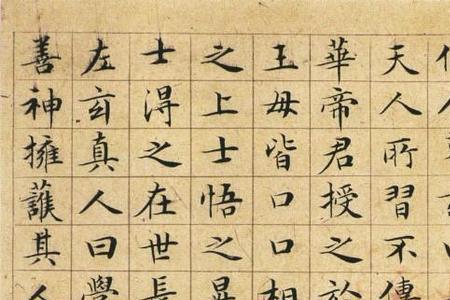 天人所習不傳
華帝君授之於
王母皆口口相
之上士悟之
士得之在世長
左玄真人曰學
善神擁護其人